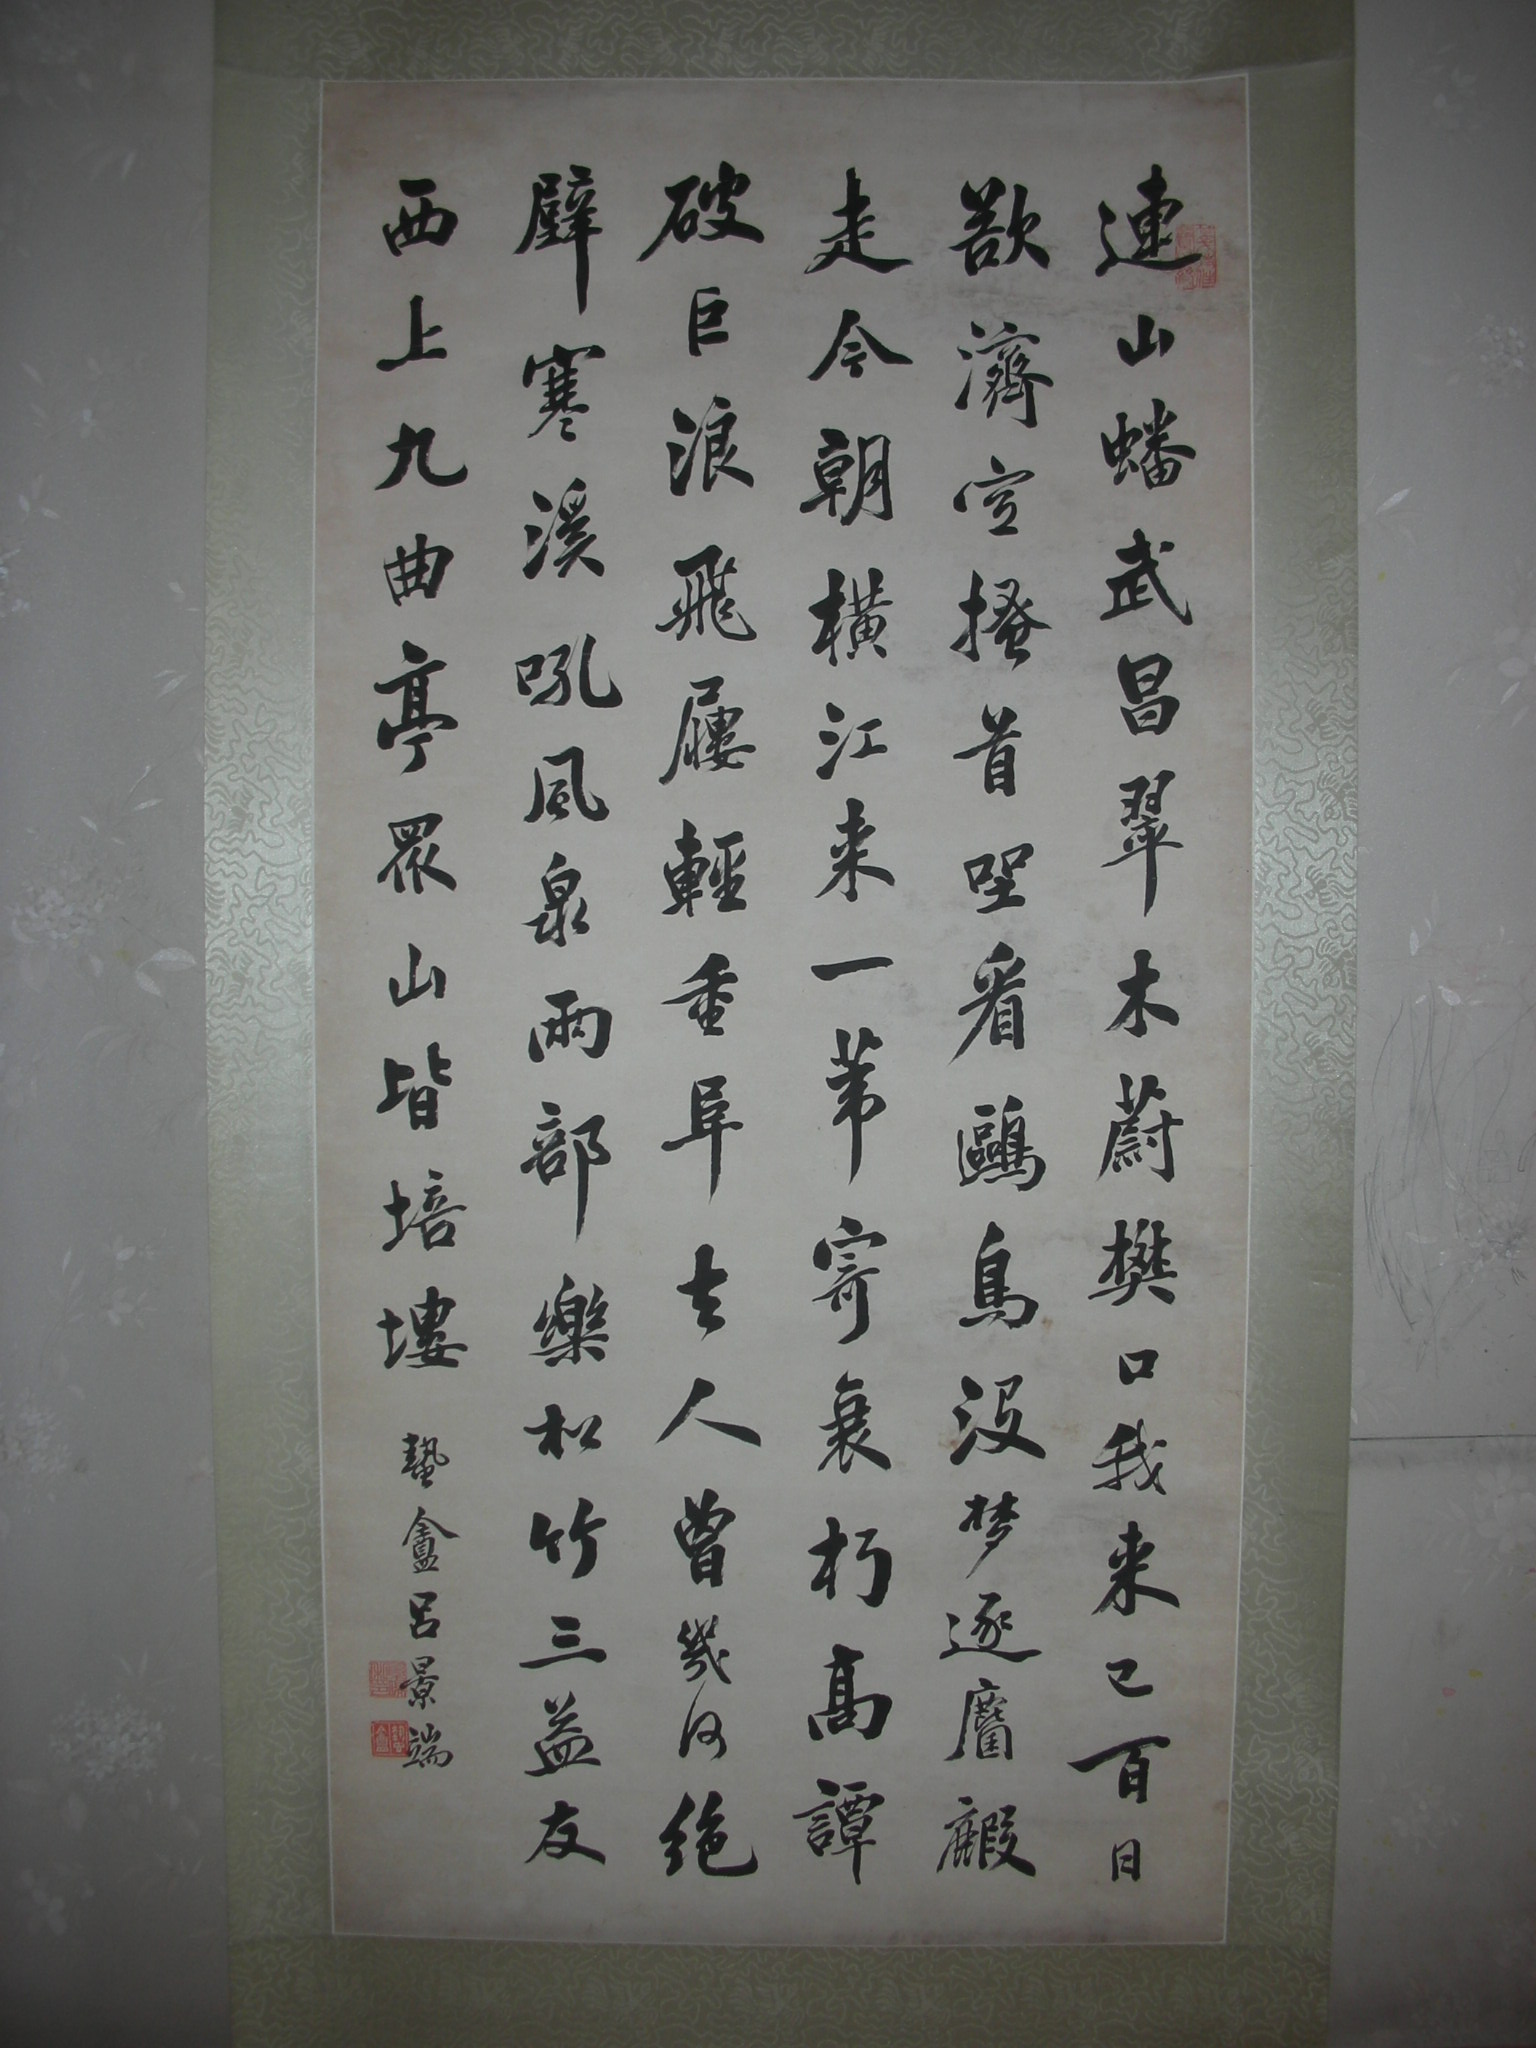 連山蟠武昌翠木蔚樊口我来已百日
欲濟空搔首坐看鷗鳥没梦逐麏麚
走今朝横江来一苇寄衰朽高譚
破巨浪飛屨輕重阜去人曾幾何絶
壁寒溪吼風泉兩部樂松竹三益友
西上九曲亭眾山皆培塿
蟄盦吕景端